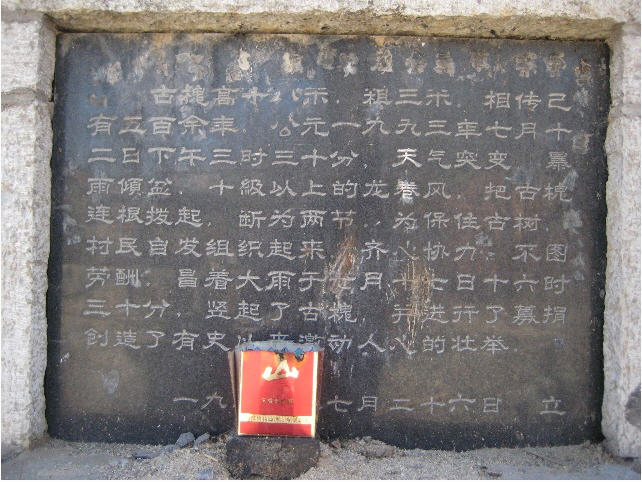 古槐高十八米.粗三米.相传已
有五百余年.公元一九九三年七月十
二日下午三时三十分.天气突变.暴
雨倾盆.十级以上的龙卷风把古槐
连根拨起.断为两节.为保住古树.
村民自发组织起来.齐心协力.不图
劳酬.冒着大雨于月十七日十六时
三十分.竖起了古槐.并进行了募捐.
创造了有史以来激动人心的壮举.
一九七月二十六日 立
山